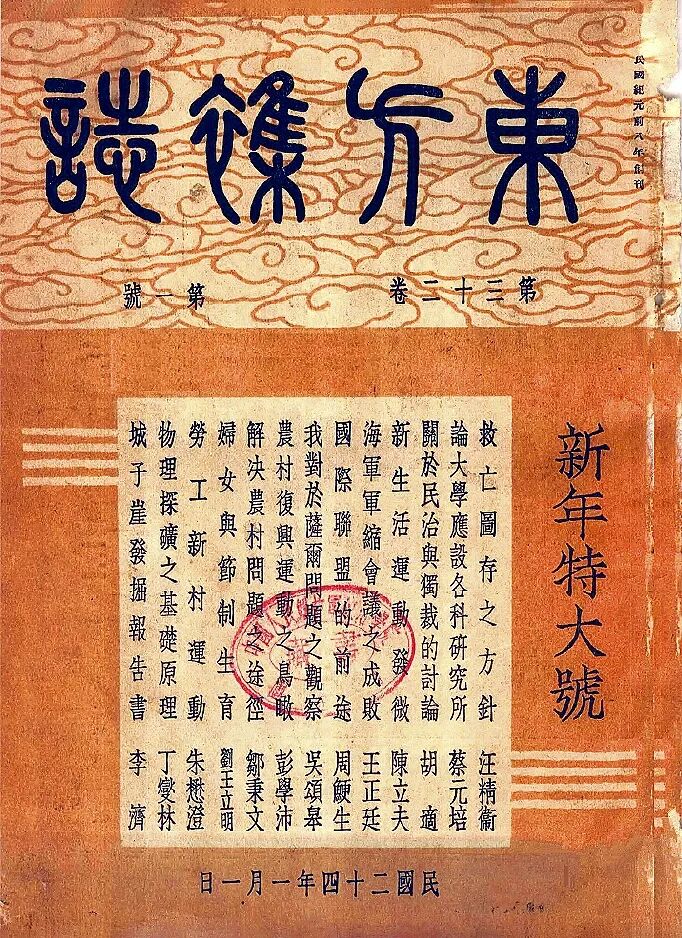 民國紀元前八年創刊
東方雜誌
第三十二卷
第一號
新年特大號
救亡圖存之方針 汪精衞
論大學應設各科研究所 蔡元培
關於民治與獨裁的討論 胡適
新生活運動發微 陳立夫
海軍軍縮會議之成敗 王正廷
國際聯盟的前途 周鯁生
我對於薩爾問題之觀察 吳頌皋
農村復興運動之鳥瞰 彭學沛
解決農村問題之途徑 鄒秉文
婦女與節制生育 劉王立明
勞工新村運動 朱懋澄
物理探礦之基礎原理 丁燮林
城子崖發掘報告書 李濟
民國二十四年一月一日